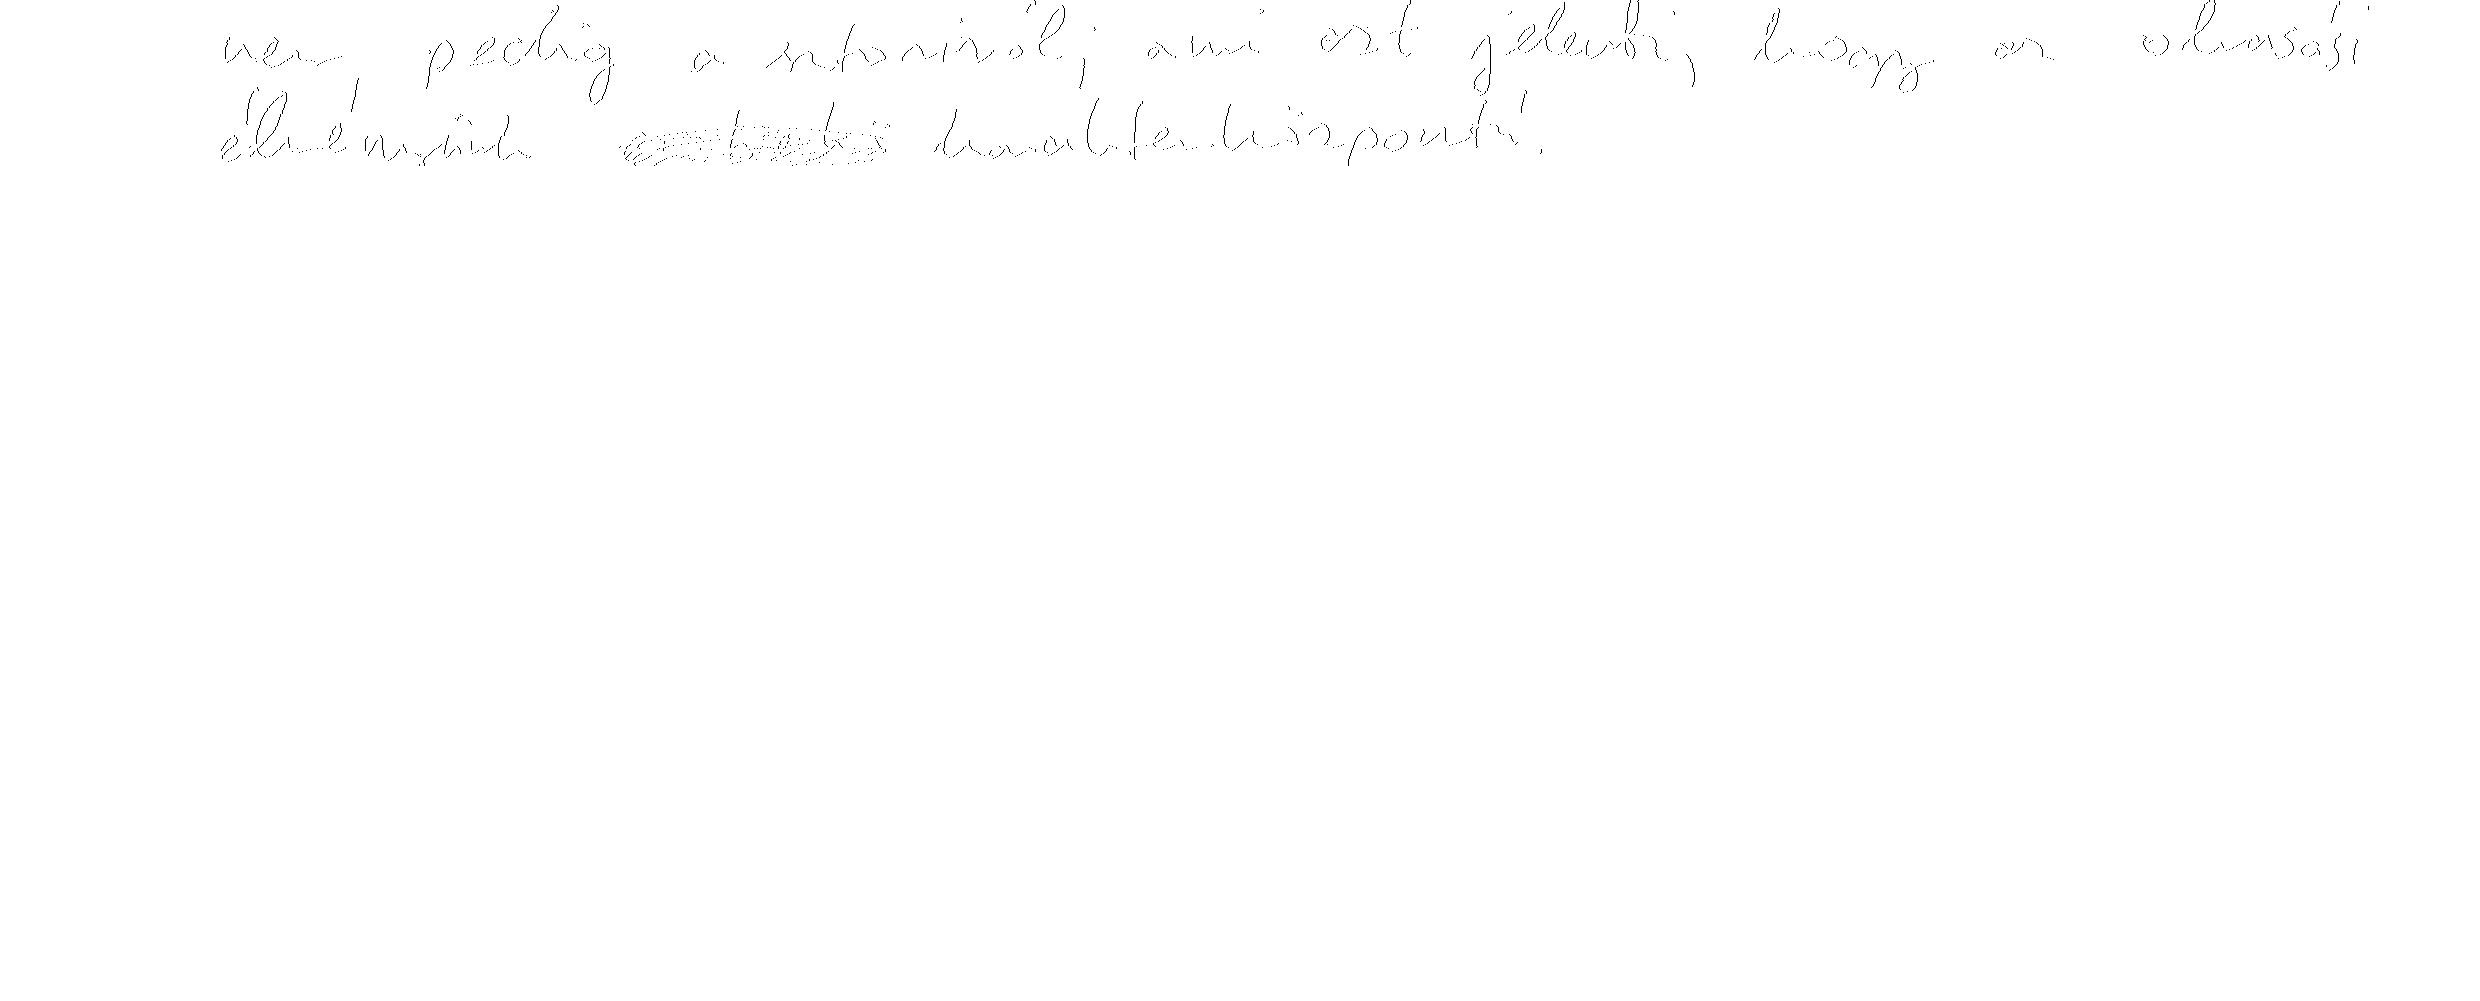 nem pedig a sztoriról, ami azt jelenti, hogy az olvasási
élményünk karakterközpontú.